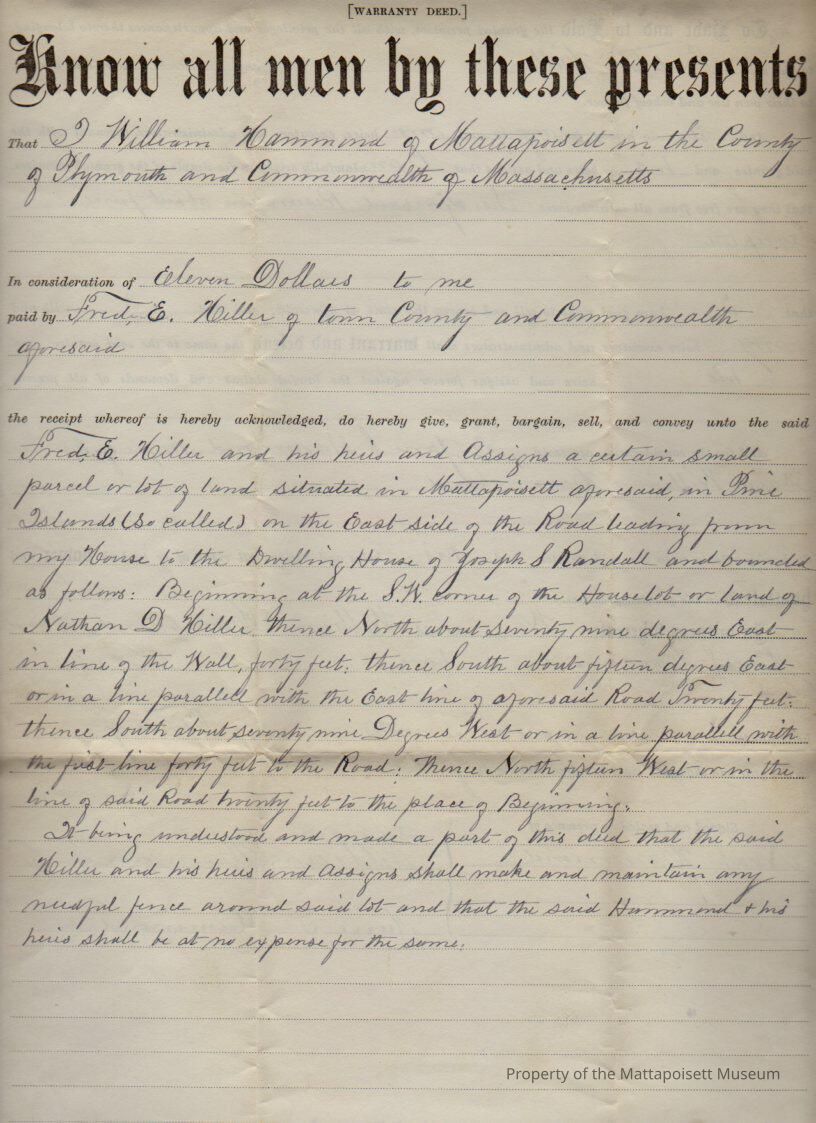 [WARRANTY DEED.]
Know all men by these presents
That I William Hammond of Mattapoisett in the County
of Plymouth and Commonwealth of Massachusetts
In consideration of Eleven Dollars to me
paid by Fred. E. Hiller of town County and Commonwealth
aforesaid
the receipt whereof is hereby acknowledged, do hereby give, grant, bargain, sell, and convey unto the said
Fred. E. Hiller and his heirs and Assigns a certain small
parcel or lot of land situated in Mattapoisett aforesaid, in Pine
Islands (so called) on the East side of the Road leading from
my House to the Dwelling House of Joseph S Randall and bounded
as follows: Beginning at the S.W. corner of the Houselot or land of
Nathan D Hiller thence North about seventy nine degrees East
in line of the Wall, forty feet: thence South about fifteen degrees East
or in a line parallell with the East line of aforesaid Road Twenty feet:
thence South about seventy nine Degrees West or in a line parallell with
the first line forty feet to the Road: thence North fifteen West or in the
line of said Road twenty feet to the place of Beginning.
It being understood and made a part of this deed that the said
Hiller and his heirs and Assigns shall make and maintain any
needful fence around said lot and that the said Hammond & his
heirs shall be at no expense for the same.
Property of the Mattapoisett Museum